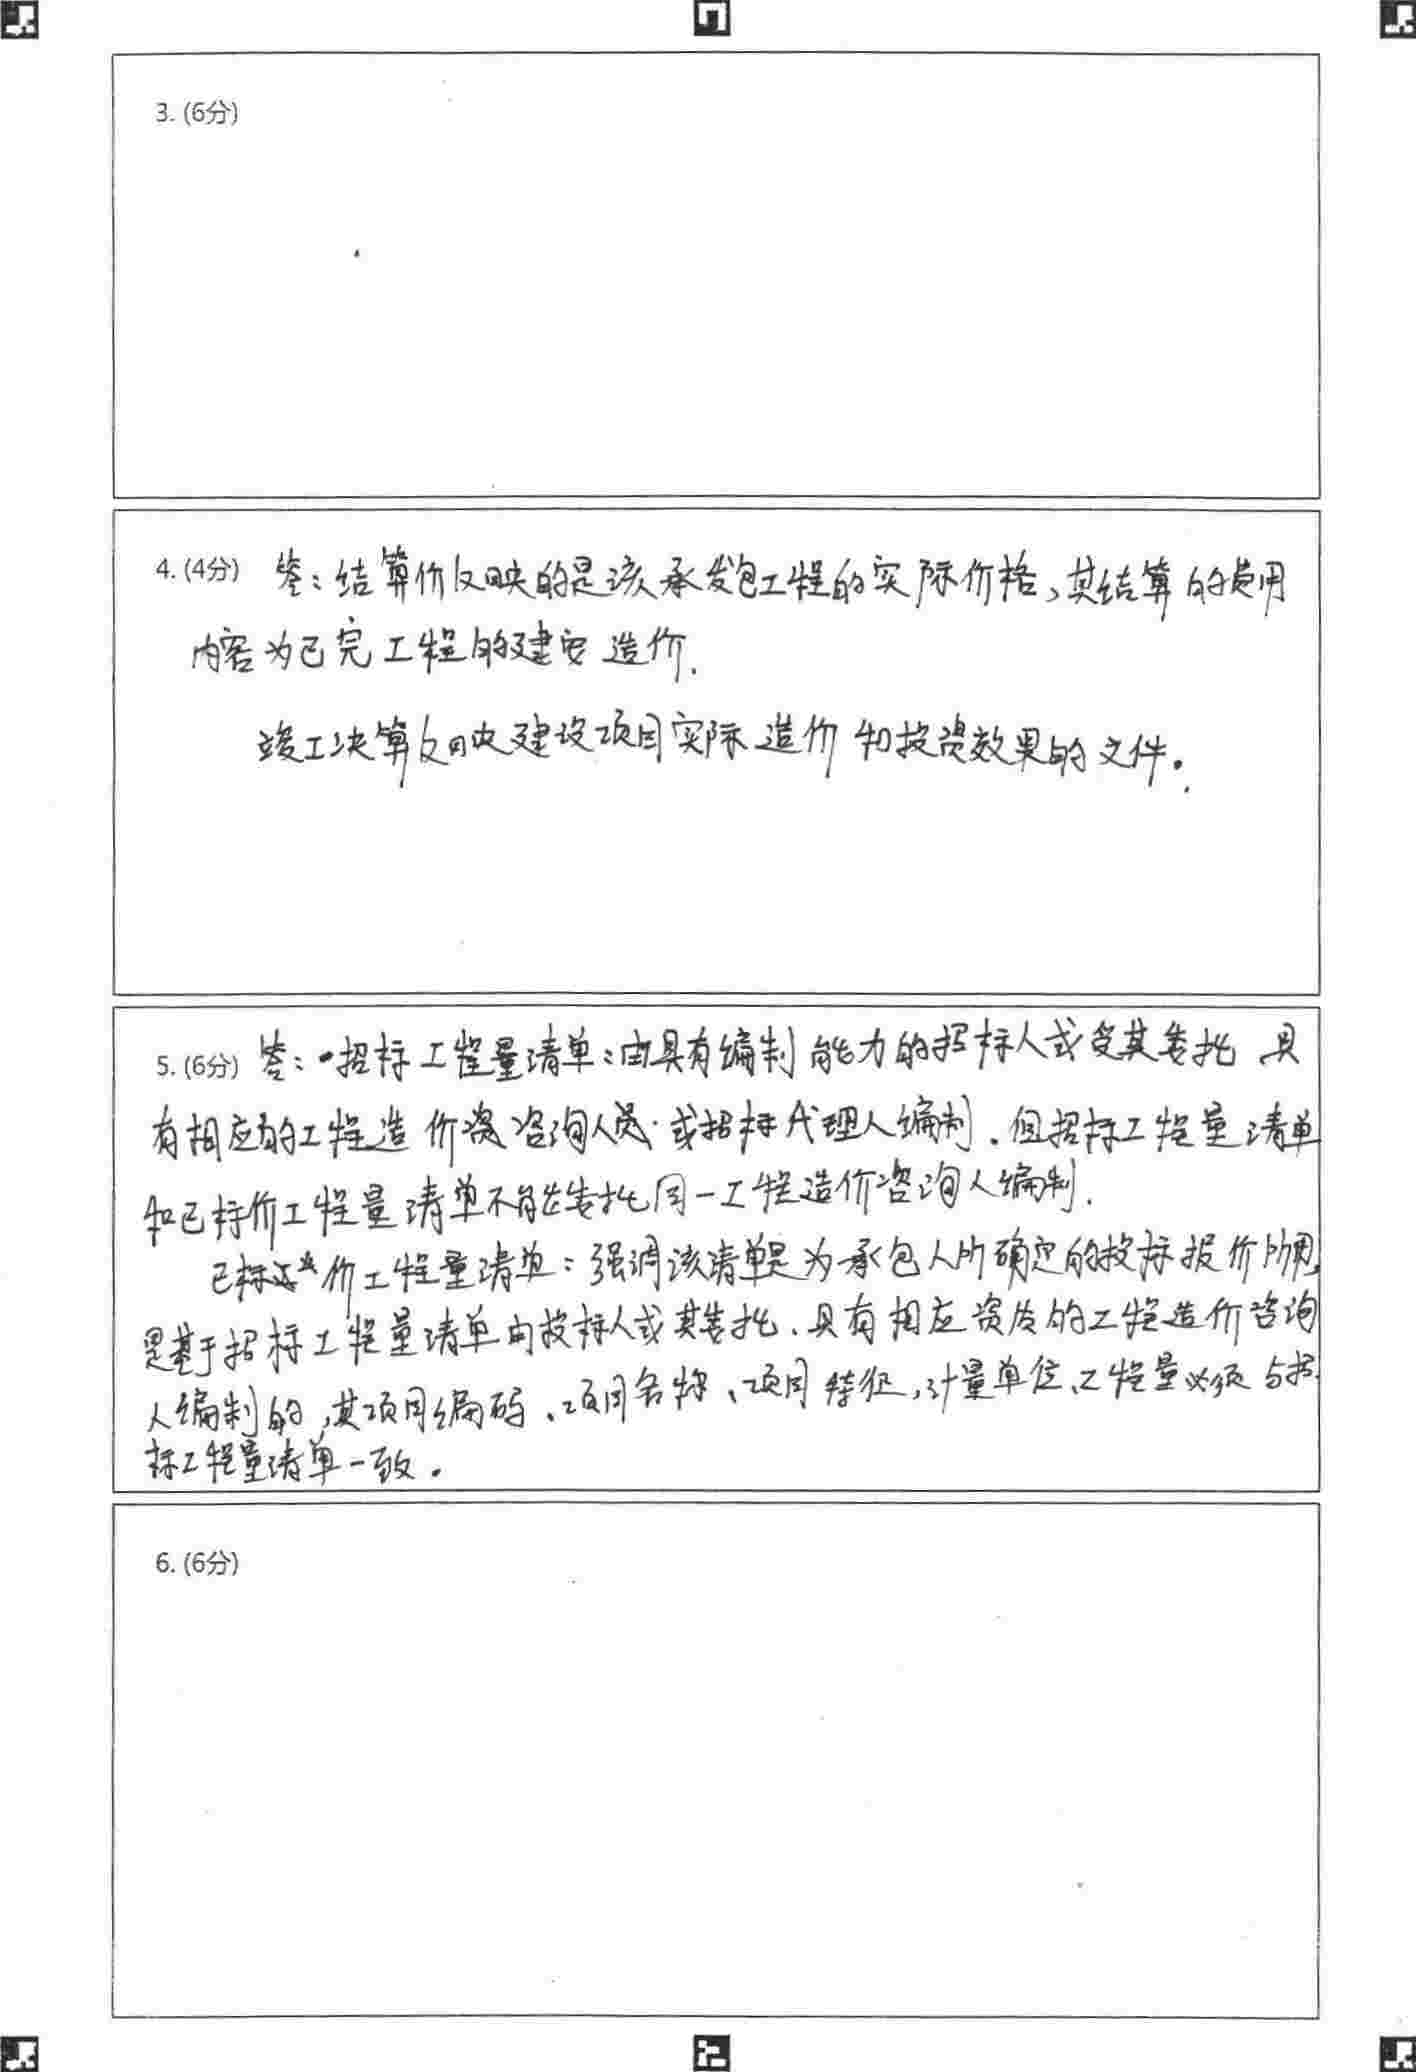 3. (6分)
4. (4分) 答：结算价反映的是该承发包工程的实际价格，其结算的费用
内容为已完工程的建安造价.
竣工决算反映建设项目实际造价和投资效果的文件。
5. (6分) 答：招标工程量清单：由具有编制能力的招标人或受其委托 具
有相应的工程造价咨询人员或招标代理人编制.但招标工程量清单
和已标价工程量清单不能委托同一工程造价咨询人编制.
已标价工程量清单：强调该清单是为承包人所确定的投标报价所用,
是基于招标工程量清单由投标人或其委托、具有相应资质的工程造价咨询
人编制的,其项目编码、项目名称、项目特征,计量单位、工程量必须与招
标工程量清单一致。
6. (6分)